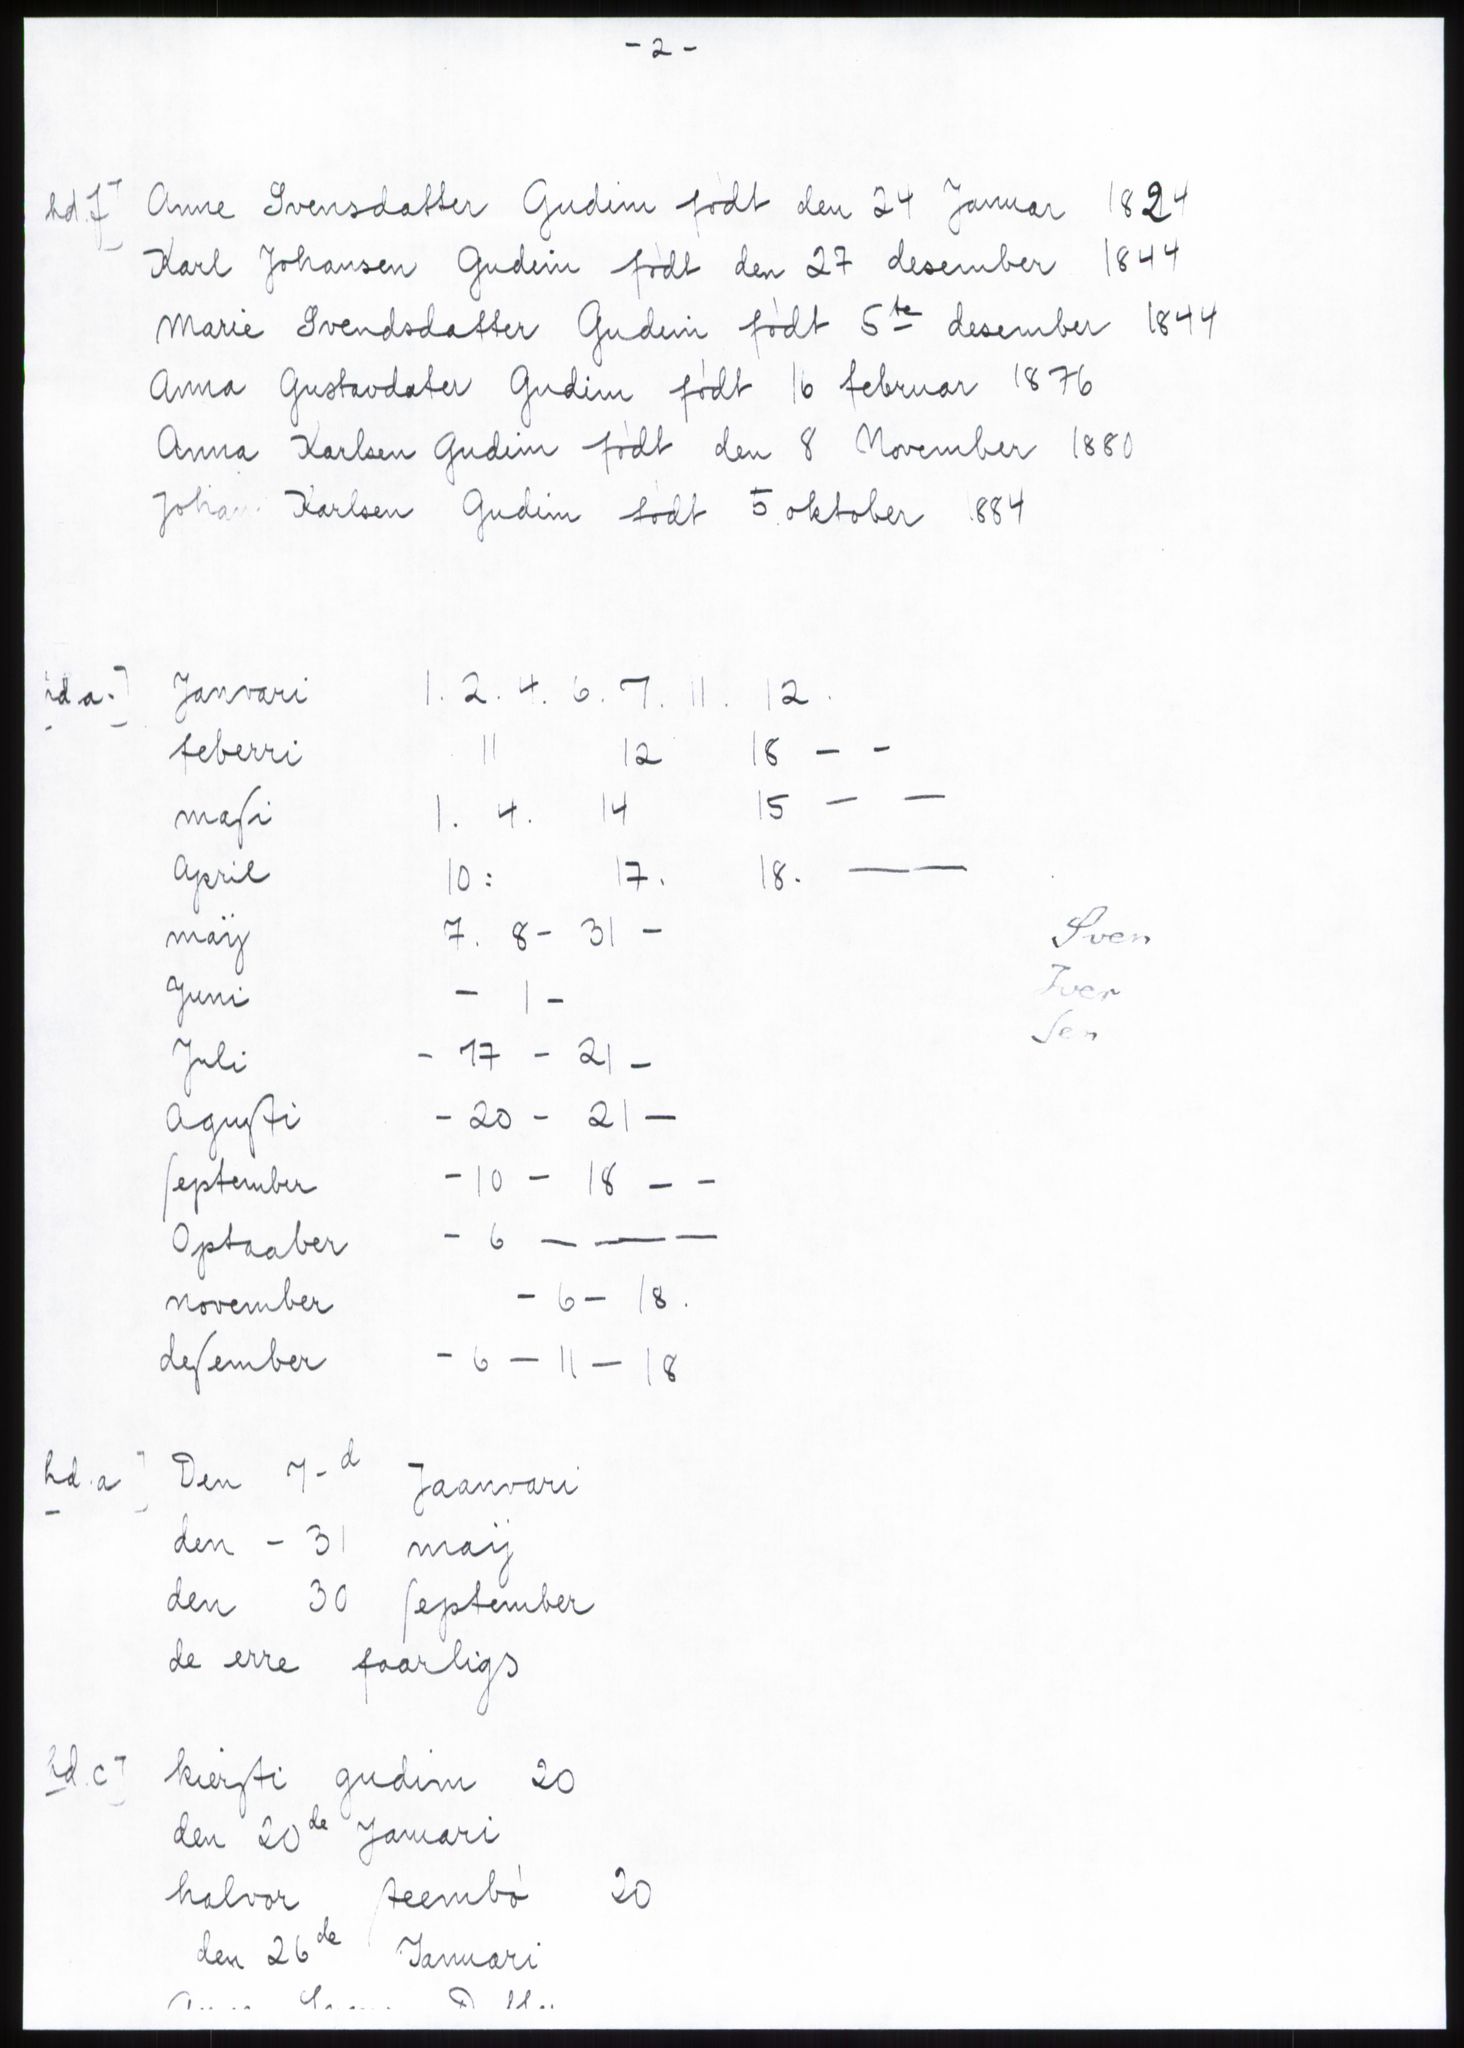 - 2 -
hd. f] Anne Svensdatter Gudim født den 24 Januar 1824
Karl Johansen Gudem født den 27 desember 1844
Marie Svendsdatter Gudem født 5te desember 1844
Anna Gustavdater Gudim født 16 februar 1876
Anna Karlsen Gudim født den 8 November 1880
Johan Karlsen Gudim født 5. oktober 1884
hd. a.] Janvari 1. 2. 4. 6. 7. 11. 12.
feberri 11 12 18 — -
maſi 1. 4. 14 15 — —
April 10: 17. 18. — —
maij 7. 8 - 31 -
Juni - 1 -
Juli - 17 - 21 -
Aguſti - 20 - 21 —
ſeptember - 10 - 18 — -
Optaaber - 6 — — —
november - 6 - 18.
deſember - 6 — 11 — 18
Sven
Iver
Sen
hd. a] Den 7-d Jaanvari
den - 31 maij
den 30 ſeptember
de erre faarligs
hd. c] kierſti gudim 20
den 20de Januari
halvor ſteembø 20
den 26de Januari